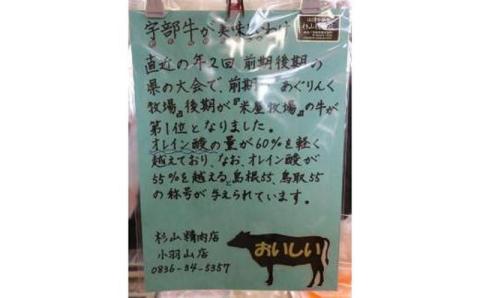 宇部牛が美味しいわけ
直近の年2回 前期後期の
県の大会で、前期 あぐりんく
牧場、後期が『米屋牧場』の牛が
第1位となりました。
オレイン酸の量が60%を軽く
越えており、なお、オレイン酸が
55%を越えると島根55、鳥取55
の称号が与えられています。
おいしい
杉山精肉店
小羽山店
0836-34-5357